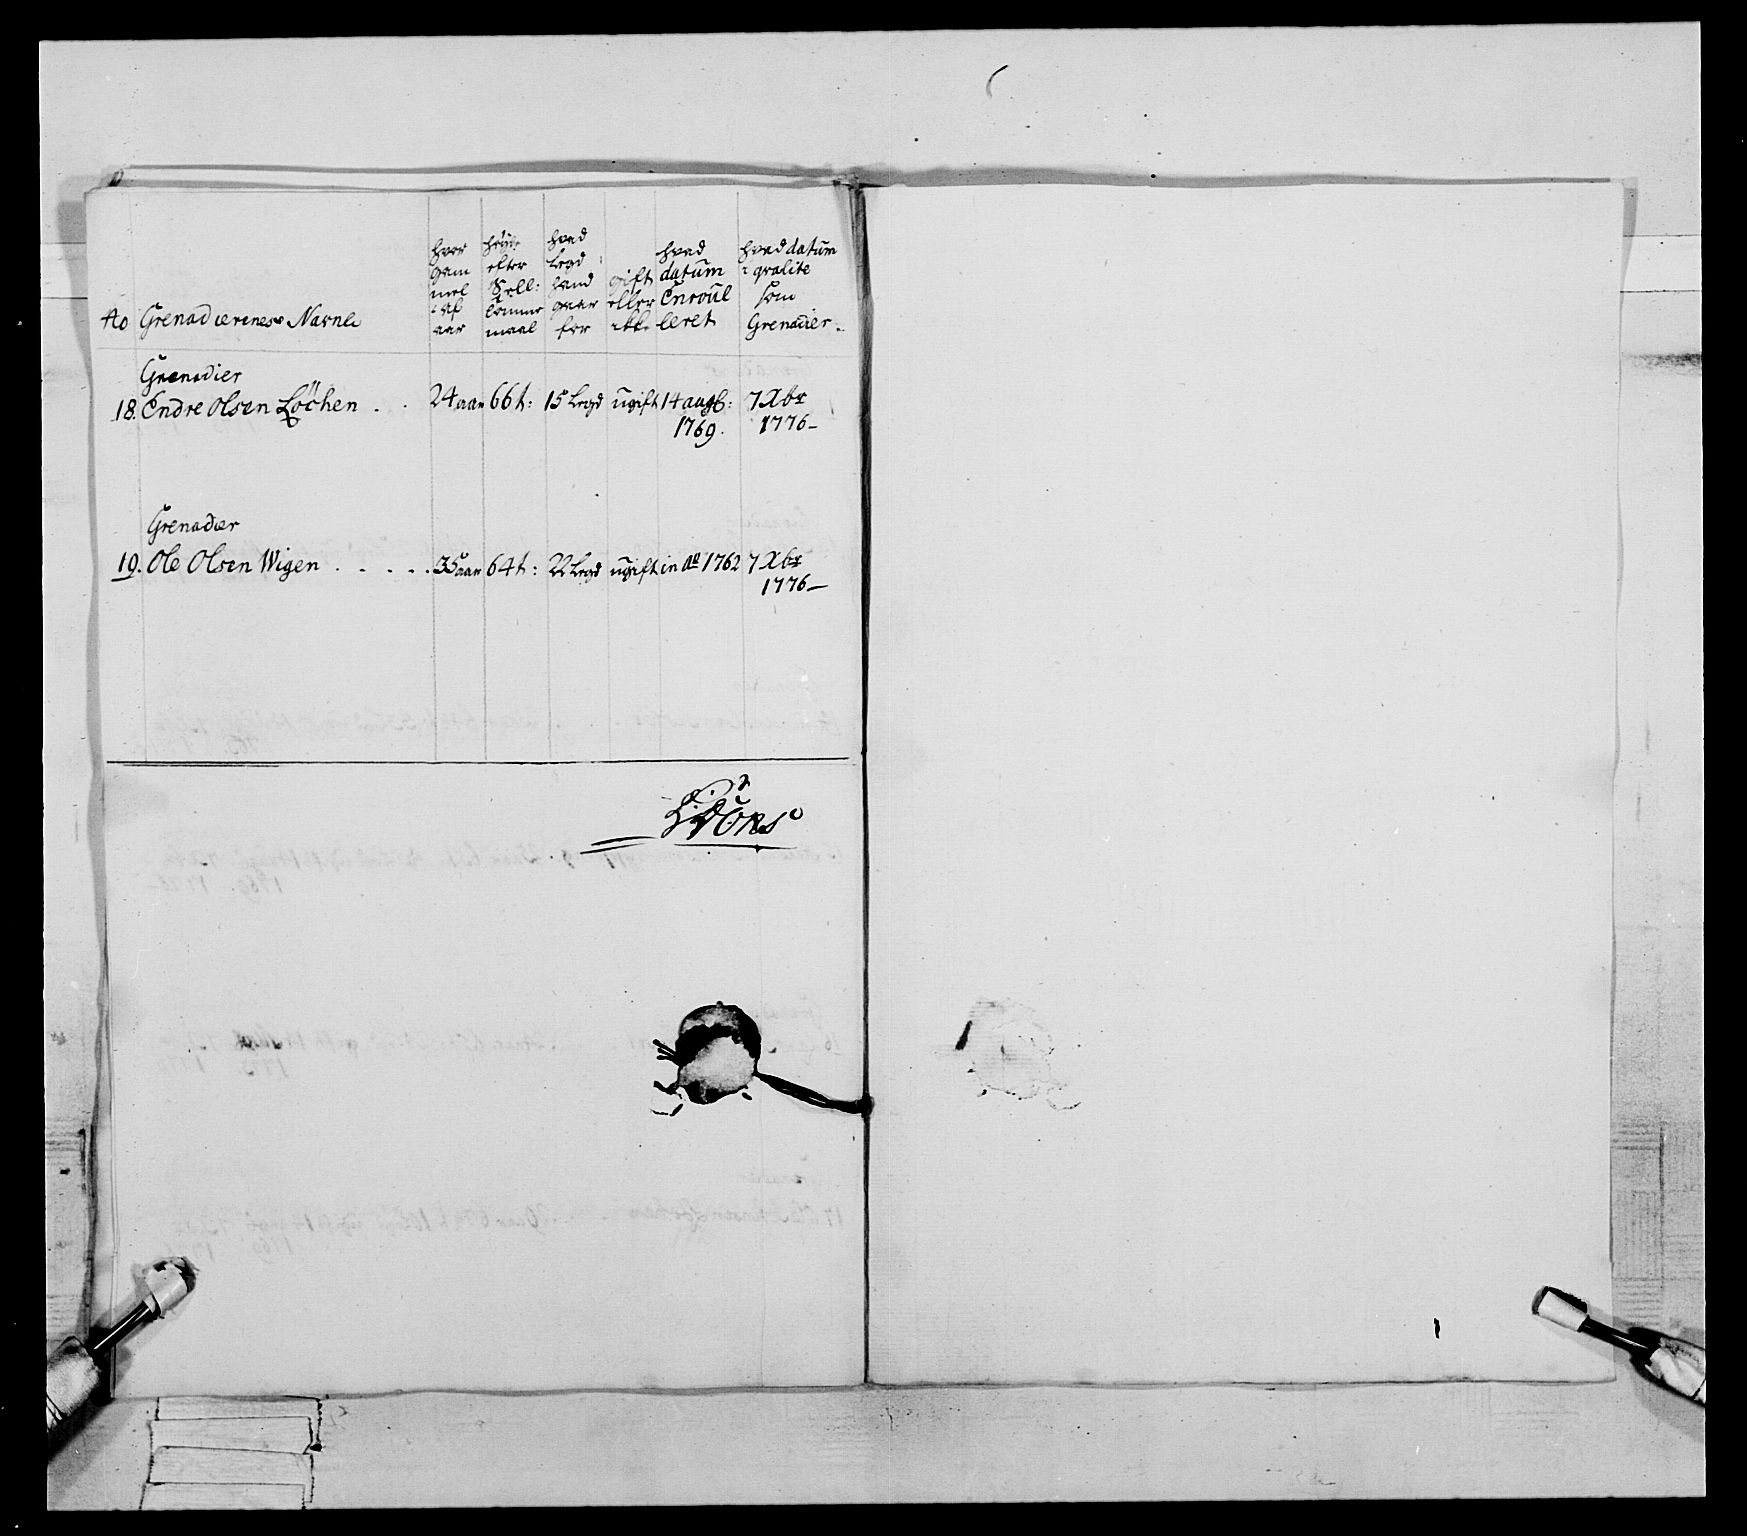 No Grenadierenese Navnle
hvor gam mel i af aar
høide efter Sell: lomme maal
hvad legd hand gaar for
gift eller ikke
hvad datum Enroul leret
hvad datum i qvalite som Grenadier.
Grenadier
18. Endre Olsen Löchen . . 24 aar 66 t: 15 legd ugift 14 augs: 7 Xbr
1769. 1776–
Grenadier
19. Ole Olsen Wigen . . . . . 35 aar 64 t: 22 legd ugift in ao 1762 7 Xbr
1776–